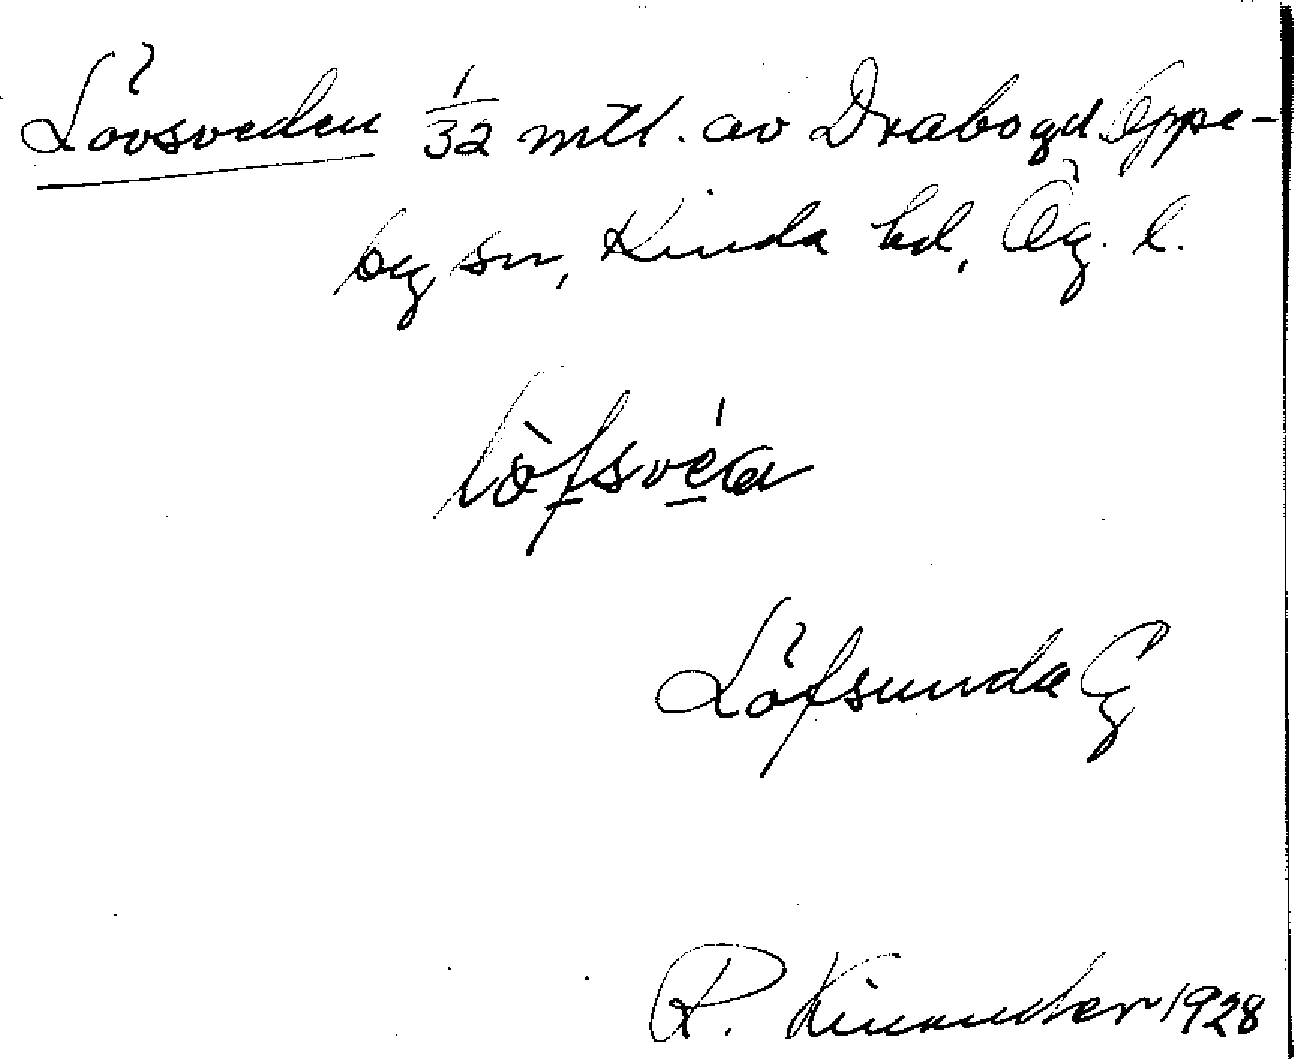 Lövsveden 1/32 mtl. av Drabo gd. Oppe-
by sn, Kinda hd, Ög. l.
lö̀fsvéa
Löfsunda
R. Kinander 1928